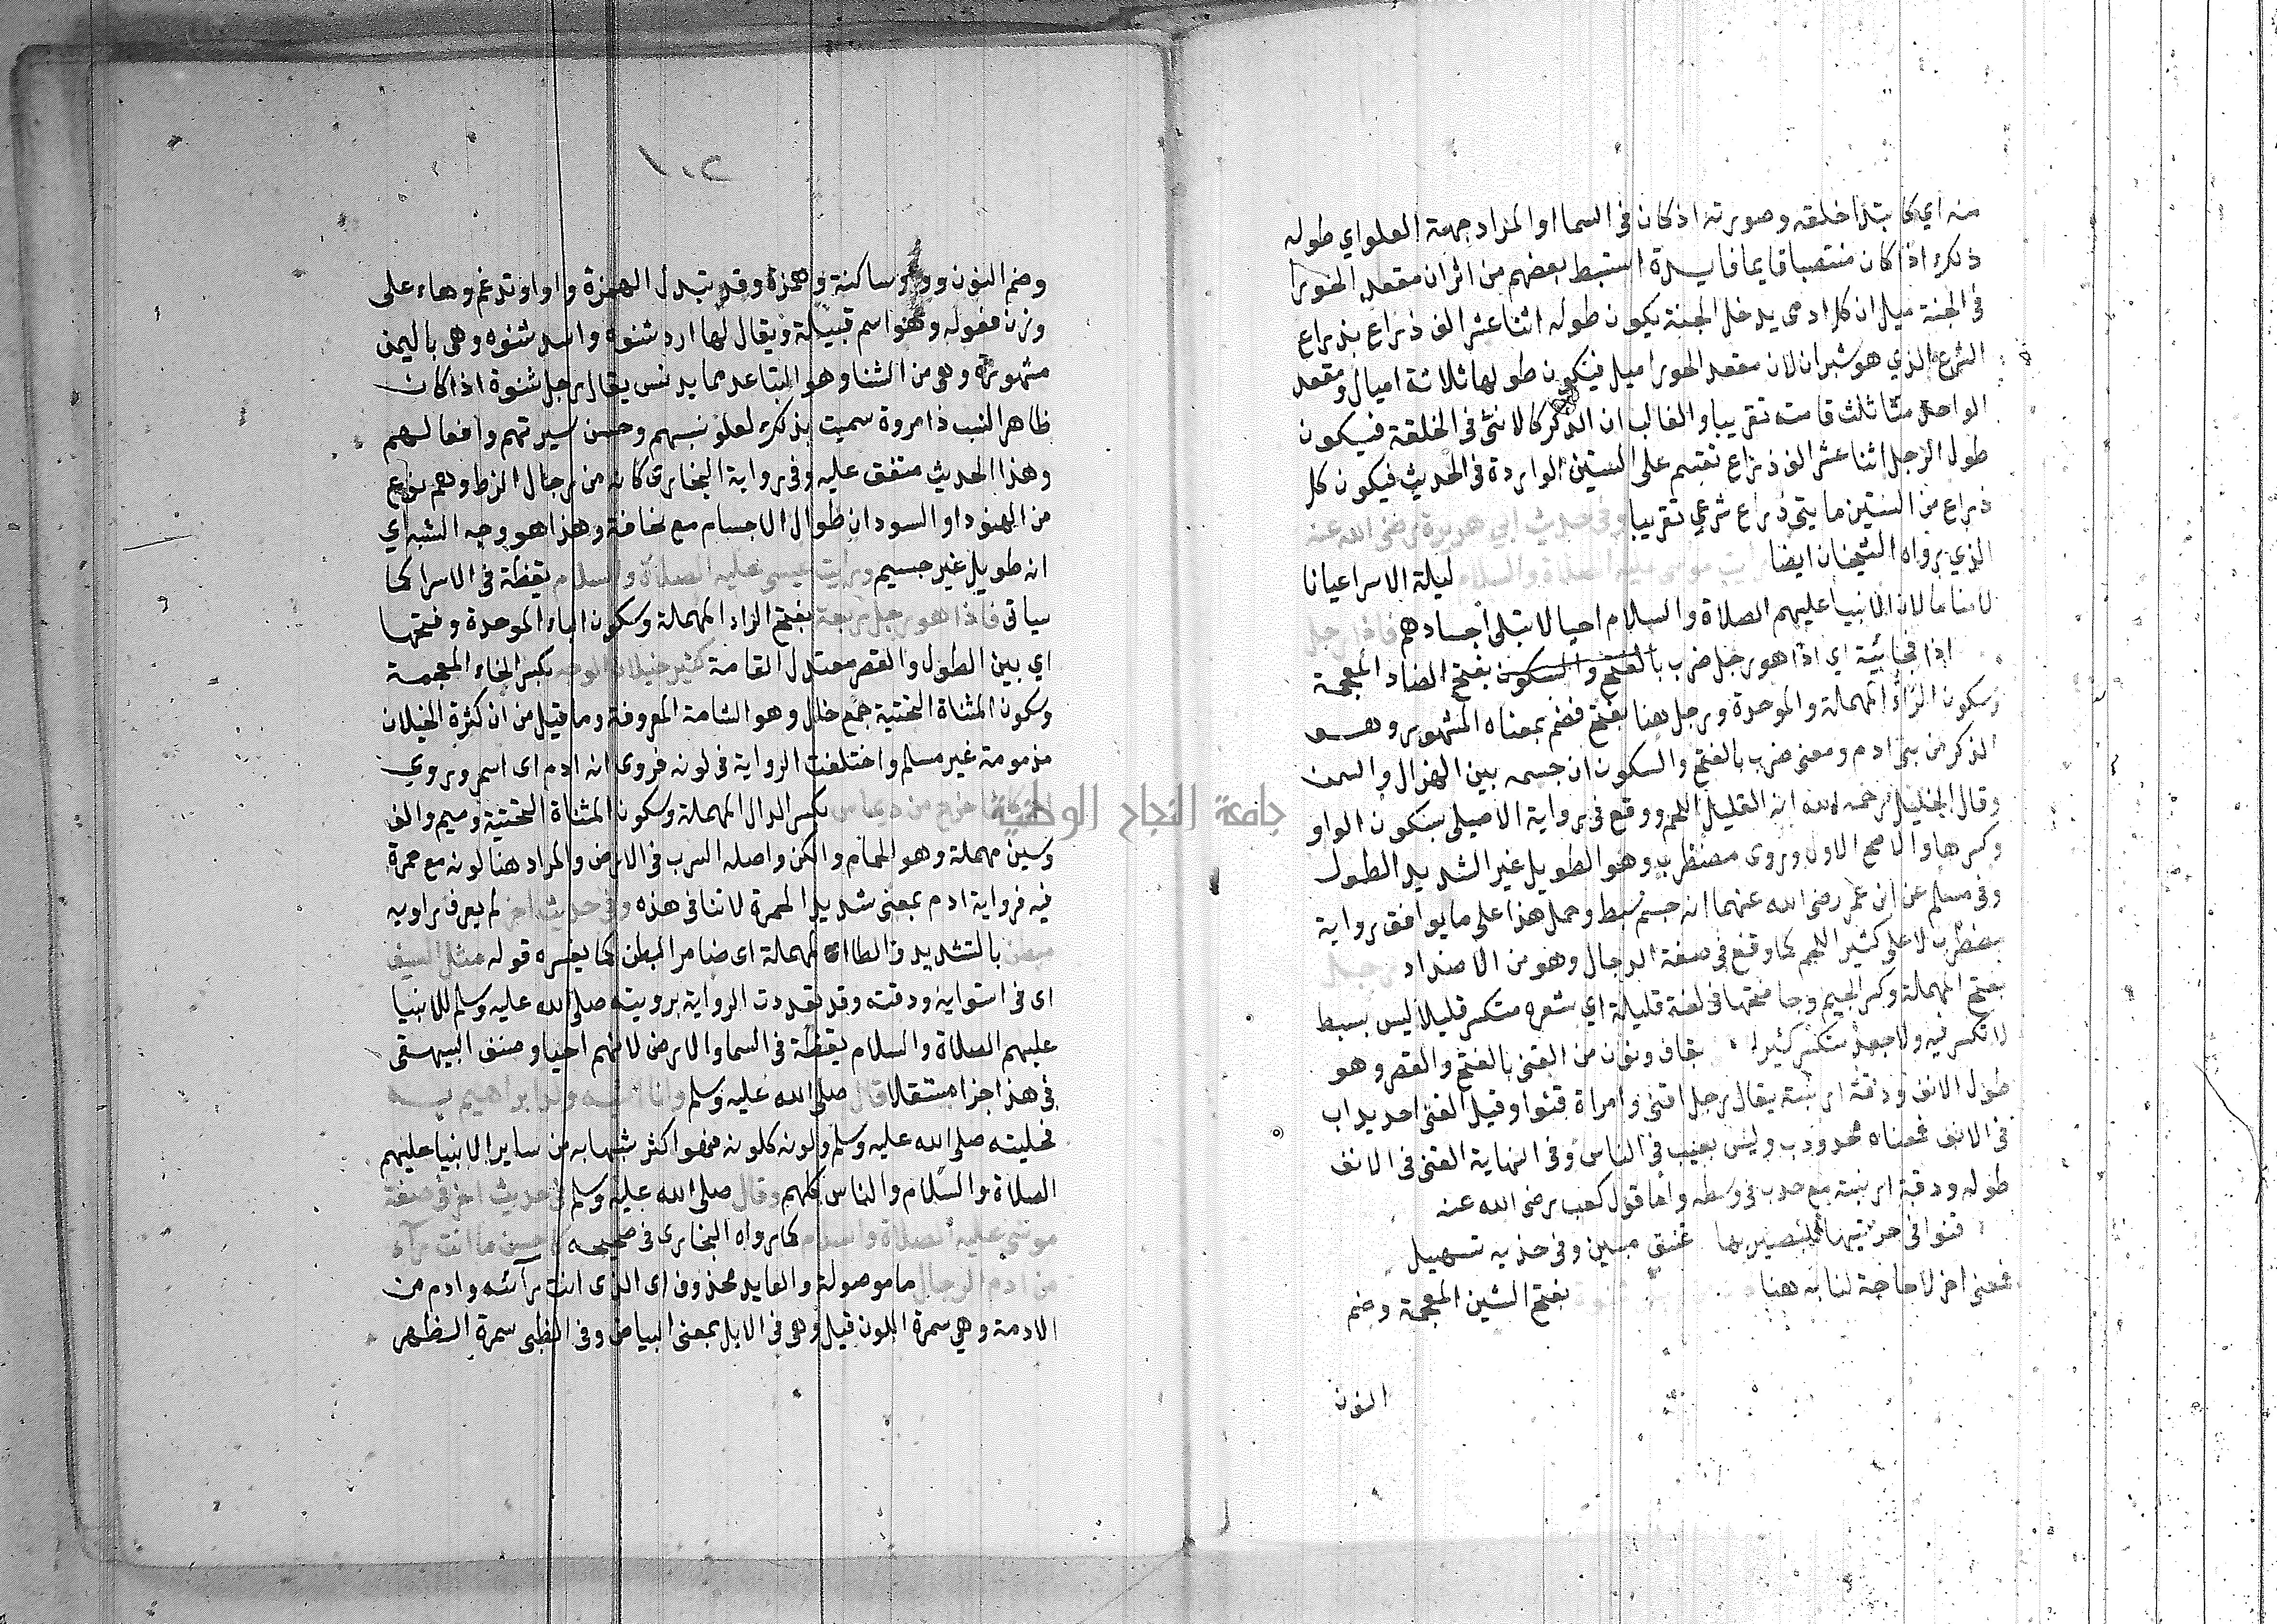 منه اي كا بتدا خلقه وصورته اذ كان في السما او المراد جهة العلو اي طوله
ذلك اذا كان منتصبا قايما فايدة استنبط بعضهم من اثر ان مقعد الحورا
في الجنة ميل ان كل ادمي يدخل الجنة يكون طوله اثنا عشر الف ذراع بذراع
الشرع الذي هو شبران لان مقعد الحورا ميل فيكون طولها ثلاثة اميال ومقعد
الواحد منا ثلث قامته تقريبا والغالب ان الذكر كالانثى في الخلقة فيكون
طول الرجل اثنا عشر الف ذراع تقسم على الستين الواردة في الحديث فيكون كل
ذراع من الستين مايتي ذراع شرعي تقريبا وفي حديث ابي هريرة رضى الله عنه
الذي رواه الشيخان ايضا رايت موسى عليه الصلاة والسلام ليلة الاسرا عيانا
لا مناما لان الانبيا عليهم الصلاة والسلام احيا لا تبلى اجسادهم فاذا رجل
اذا فجائية اي اذا هو رجل ضرب بالفتح والسكون بفتح الضاد المعجمة
وسكون الراء المهملة والموحدة ورجل هنا بفتح فضم بمعناه المشهور وهو
الذكر من بنى ادم ومعنى ضرب بالفتح والسكون ان جسمه بين الهزال والسمن
وقال الخليل رحمه الله انه القليل اللحم ووقع في رواية الاصيلى بسكون الواو
وكسرها والاصح الاول وروى مضطرب وهو الطويل غير الشديد الطول
وفي مسلم عن ابن عمر رضى الله عنهما انه جسيم سبط وحمل هذا على ما يوافق رواية
مضطرب لا على كثير اللحم كما وقع في صفة الدجال وهو من الاضداد رجل
بفتح المهملة وكسر الجيم وجا فتحها في لغة قليلة اي شعره متكسر قليلا ليس بسبط
لا تكسر فيه ولا جعد متكسر كثيرا بقاف ونون من القنى بالفتح والقصر وهو
طول الانف ودقة ارنبته يقال رجل اقنى وامراة قنوا وقيل القنى احديداب
في الانف فمعناه محدودب وليس بعيب في الناس وفي النهاية القنى في الانف
طوله ودقة ارنبته مع حدب في وسطه واما قول كعب رضى الله عنه
قنوا في حرتيها للبصير بها عتق مبين وفى خديه تسهيل
فمعنى اخر لا حاجة لنا به هنا بفتح الشين المعجمة وضم
النون
١٠٢
وضم النون وواو ساكنة وهمزة وقد تبدل الهمزة واوا وتدغم وهاء على
وزن فعوله وهو اسم قبيلة ويقال لها ازد شنوه واسد شنوه وهى باليمن
مشهورة وهى من الشنا وهو التباعد مما يدنس يقال رجل شنوة اذا كان
ظاهر النسب ذا مروة سميت بذلك لعلو نسبهم وحسن سيرتهم وافعالهم
وهذا الحديث متفق عليه وفي رواية البخارى كانه من رجال الزط وهم نوع
من الهنود او السودان طوال الاجسام مع نحافة وهذا هو وجه الشبه اي
انه طويل غير جسيم ورايت عيسى عليه الصلاة والسلام يقظة في الاسرا كما
سياتى فاذا هو رجل ربعة بفتح الراء المهملة وسكون الباء الموحدة وفتحها
اي بين الطول والقصر معتدل القامة كثير خيلان الوجه بكسر الخاء المعجمة
وسكون المثناة التحتية جمع خال وهو الشامة المعروفة وما قيل من ان كثرة الخيلان
مذمومة غير مسلم واختلفت الرواية في لونه فروى انه ادم اى اسمر وروي
كانما خرج من ديماس بكسر الدال المهملة وسكون المثناة التحتية وميم والف
وسين مهملة وهو الحمام والكن واصله السرب في الارض والمراد هنا لونه مع حمرة
فيه فرواية ادم بمعنى شديد الحمرة لا تنافي هذه وفي حديث اخر لم يعرف راويه
مبطن بالتشديد والطاا مهملة اى ضامر البطن كما يفسره قوله مثل السيف
اى في استوايه ودقته وقد تعددت الرواية برويته صلى الله عليه وسلم للانبيا
عليهم الصلاة والسلام يقظة في السما والارض لانهم احيا وصنف البيهقى
في هذا جزا مستقلا قال صلى الله عليه وسلم وانا اشبه ولد ابراهيم به
فحليته صلى الله عليه وسلم ولونه كلونه فهو اكثر شبها به من ساير الانبيا عليهم
الصلاة والسلام والناس كلهم وقال صلى الله عليه وسلم في حديث اخر في صفة
موسى عليه الصلاة والسلام كما رواه البخارى في صحيحه كاحسن ما انت رآء
من ادم الرجال ما موصولة والعايد محذوف اى الذى انت رآئه وادم من
الادمة وهي سمرة اللون قيل وهى في الابل بمعنى البياض وفي الظبى سمرة الظهر
جامعة النجاح الوطنية